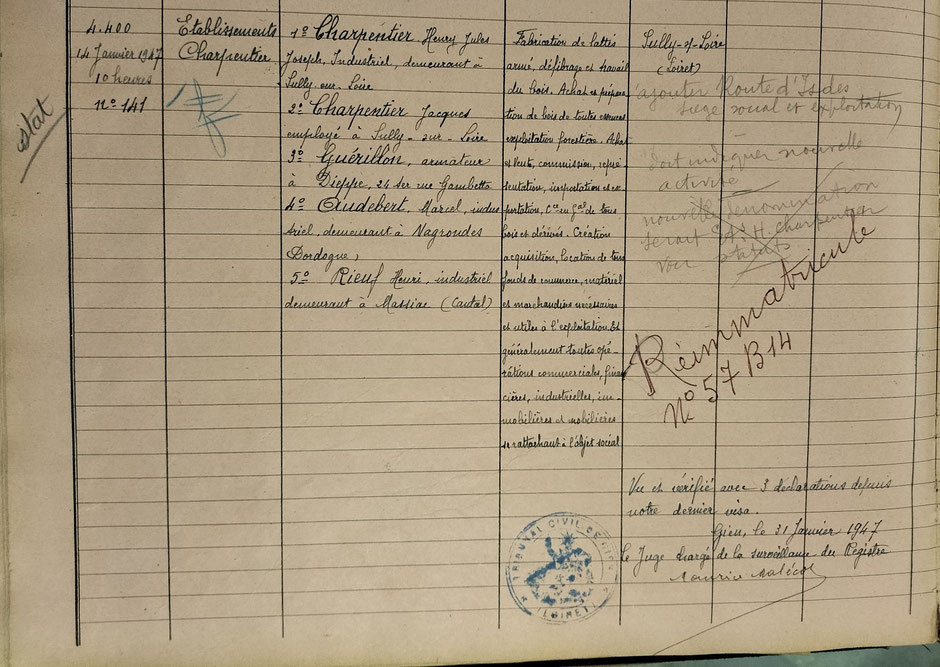 stat
4.400
14 Janvier 1947
10 heures
n° 141
Etablissements
Charpentier
1° Charpentier Henry Jules
Joseph, Industriel, demeurant à
Sully-sur-Loire
2° Charpentier Jacques
employé à Sully-sur-Loire
3° Guérillon, armateur
à Dieppe, 24 ter rue Gambetta
4° Audebert, Marcel, indus
triel, demeurant à
Dordogne,
5° Rieuf Henri, industriel
demeurant à Massiac (Cantal)
Fabrication de lattis
armé, défibrage et travail
du bois. Achat et prépara
tion de bois de toutes essences
exploitation forestière. Achat
et vente, commission, repré-
sentation, importation et ex-
portation, Cce en Gal de tous
bois et dérivés. Création
acquisition, location de tous
fonds de commerce, matériel
et marchandises nécessaires
et utiles à l'exploitation. Et
généralement toutes opé-
rations commerciales, finan
cières, industrielles, im-
mobilières et mobilières
se rattachant à l'objet social
Sully-s-Loire
(Loiret)
ajouter Route d'Isdes
siège social et exploitation
Doit indiquer nouvelle
activité
nouvelle dénomination
serait Ets H. Charpentier
voir statuts
Réimmatriculé
N° 57 B 14
Vu et vérifié avec 3 déclarations depuis
notre dernier visa.
Gien, le 31 Janvier 1947
Le Juge chargé de la surveillance du Registre
Maurice
TRIBUNAL CIVIL DE GIEN
(LOIRET)